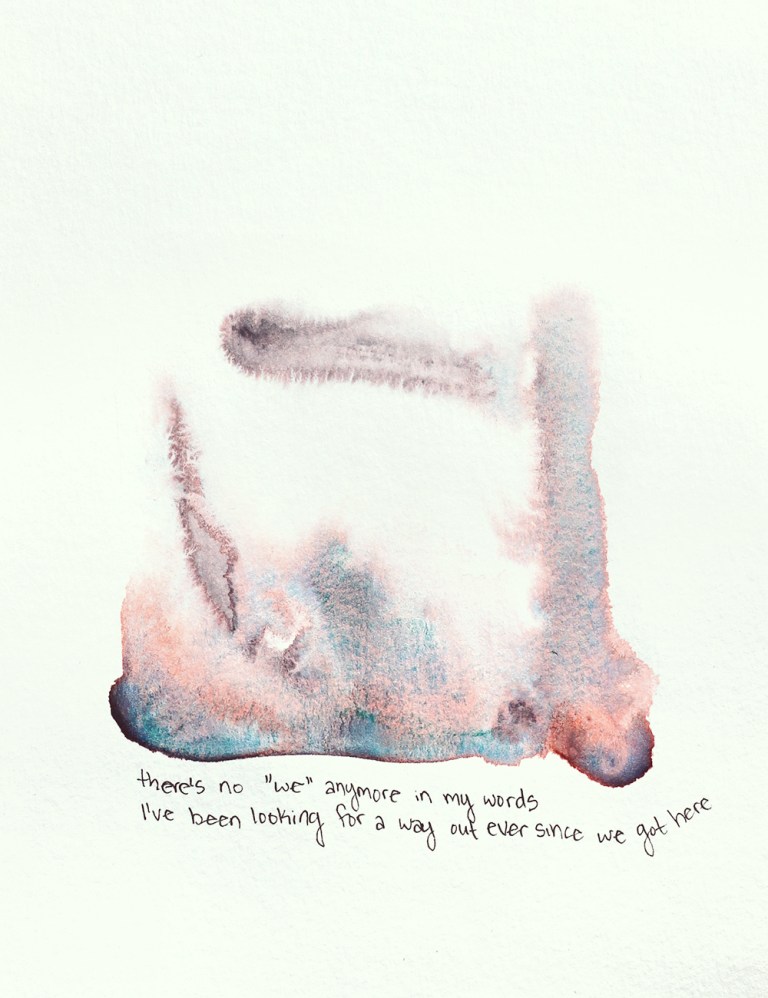 there's no "we" anymore in my words
I've been looking for a way out ever since we got here